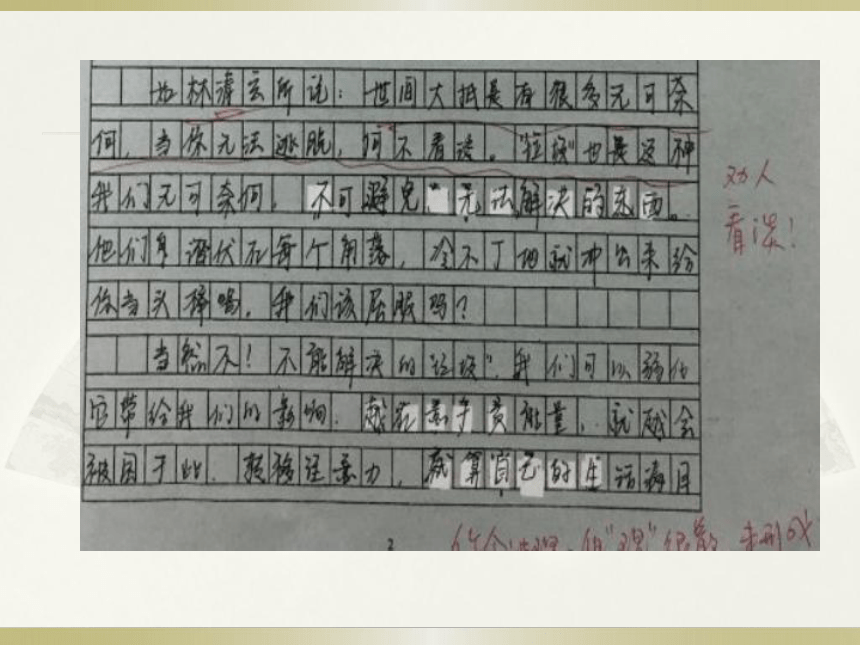 如林清玄所说：世间大抵是有很多无可奈
何，当你无法逃脱，何不看淡。"垃圾"也是这种
我们无可奈何，不可避免 无法解决的东西。
他们早潜伏在每个角落，冷不丁地就冲出来给
你当头棒喝，我们该屈服吗？
当然不！不能解决的"垃圾"，我们可以弱化
它带给我们的影响。越在意于负能量，就越会
被困于此。转移注意力，
自己的生活满目
劝人
看淡！